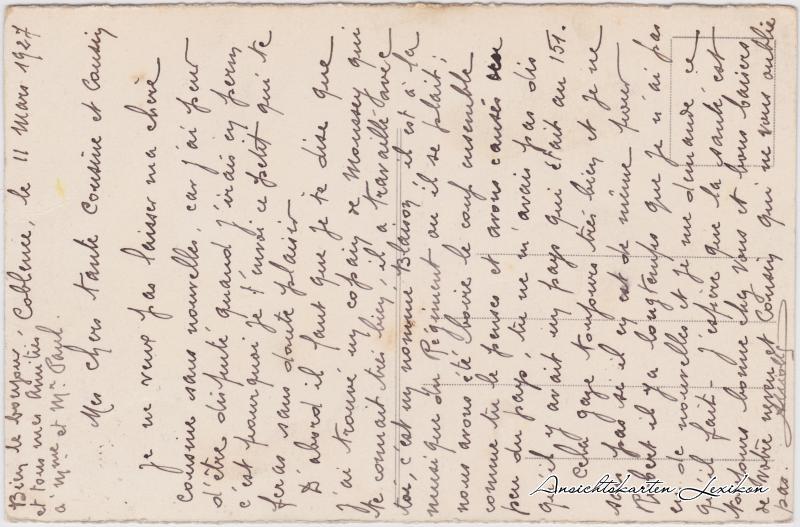 Coblence, le 11 Mars 1927
Mes chers tante cousine et cousin
Je ne veux pas laisser ma chère
cousine sans nouvelles, car j'ai peur
d'être disputé quand j'irais en perm
c'est pourquoi je t'envoi ce petit qui te
feras sans doute plaisir
D'abord il faut que je te dise que
j'ai trouvé un copain de Moussey qui
te connait très bien, il a travaillé avec
toi, c'est un nommé Blaison il est à la
musique du Régiment ou il se plait;
nous avons été boire le coup ensemble
comme tu le penses et avons causés
peu du pays, tu ne m'avais pas dis
qu'il y avait un pays qui était au 151.
Cela gaze toujours très bien et je ne
sais pas si il en est de même pour
Robert il y a longtemps que je n'ai pas
eu de nouvelles et je me demande ce
qu'il fait - j'espère que la santé est
toujours bonne chez vous et bons baisers
de votre neveu et Cousin qui ne vous oublie
pas.
Bien le bonjour
et tous mes amitiés
à Mme et Mr Paul.
Ansichtskarten-Lexikon